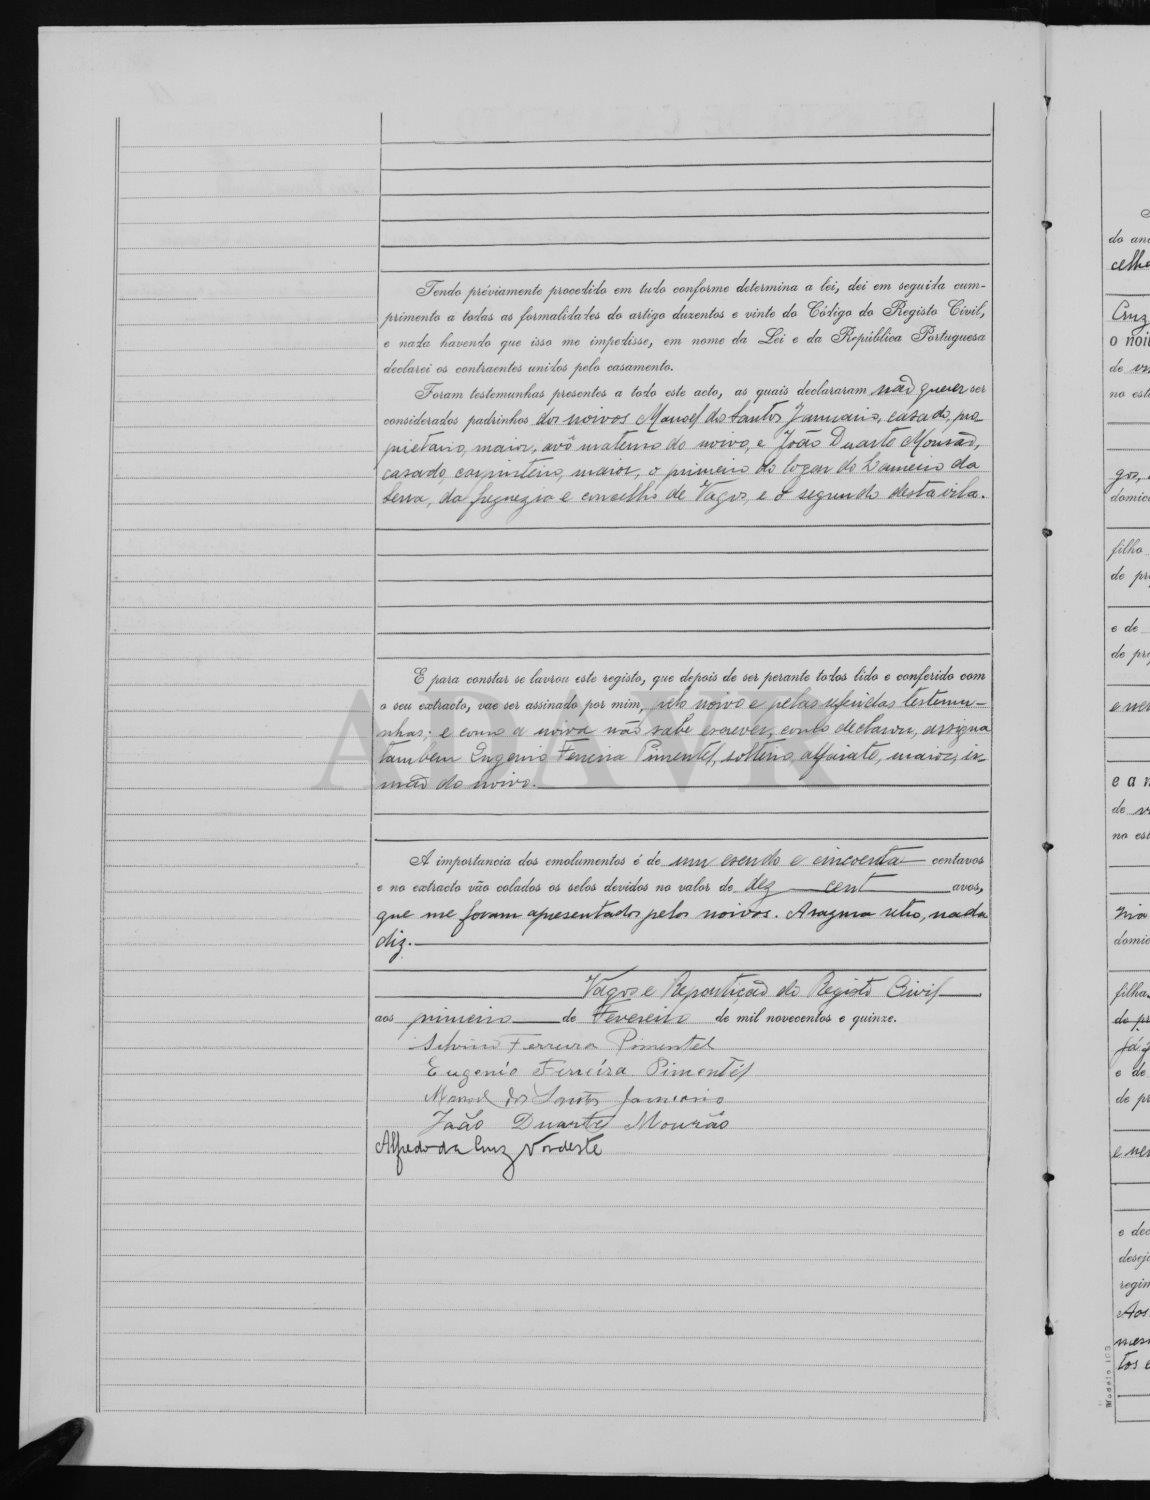 Tendo préviamente procedido em tudo conforme determina a lei, dei em seguida cum-
primento a todas as formalidades do artigo duzentos e vinte do Código do Registo Civil,
e nada havendo que isso me impedisse, em nome da Lei e da República Portuguesa
declarei os contraentes unidos pelo casamento.
Foram testemunhas presentes a todo este acto, as quais declararam não querer ser
considerados padrinhos dos noivos Manoel dos Santos Januario, casado, pro-
prietario, maior, avô materno do noivo, e João Duarte Mourão,
casado, carpinteiro, maior, o primeiro do logar do Lameiro da
Serra, da freguezia e concelho de Vagos, e o segundo desta vila.
E para constar se lavrou este registo, que depois de ser perante todos lido e conferido com
o seu extracto, vae ser assinado por mim, pelo noivo e pelas referidas testemu-
nhas; e como a noiva não sabe escrever, como declarou, assigna
tambem Eugenio Ferreira Pimentel, solteiro, alfaiate, maior, ir-
mão do noivo.
A importancia dos emolumentos é de um escudo e cincoenta centavos
e no extracto vão colados os selos devidos no valor de dez cent avos,
que me foram apresentados pelos noivos. A rasura retro, nada
diz.
Vagos e Repartição do Registo Civil
aos primeiro de Fevereiro de mil novecentos e quinze.
Silvino Ferreira Pimentel
Eugenio Ferreira Pimentel
Manoel dos Santos Januario
João Duarte Mourão
Alfredo da Cruz Nordeste
ADAVR
do an
celh
Cruz
o noi
de
no est
gos,
domic
filho
de pr
e de
de pr
e ne
e a n
de
no est
domic
filha
do p
Já
e de
de p
e ne
e dec
desej
regim
Aos
mes
tos e
Modelo 103